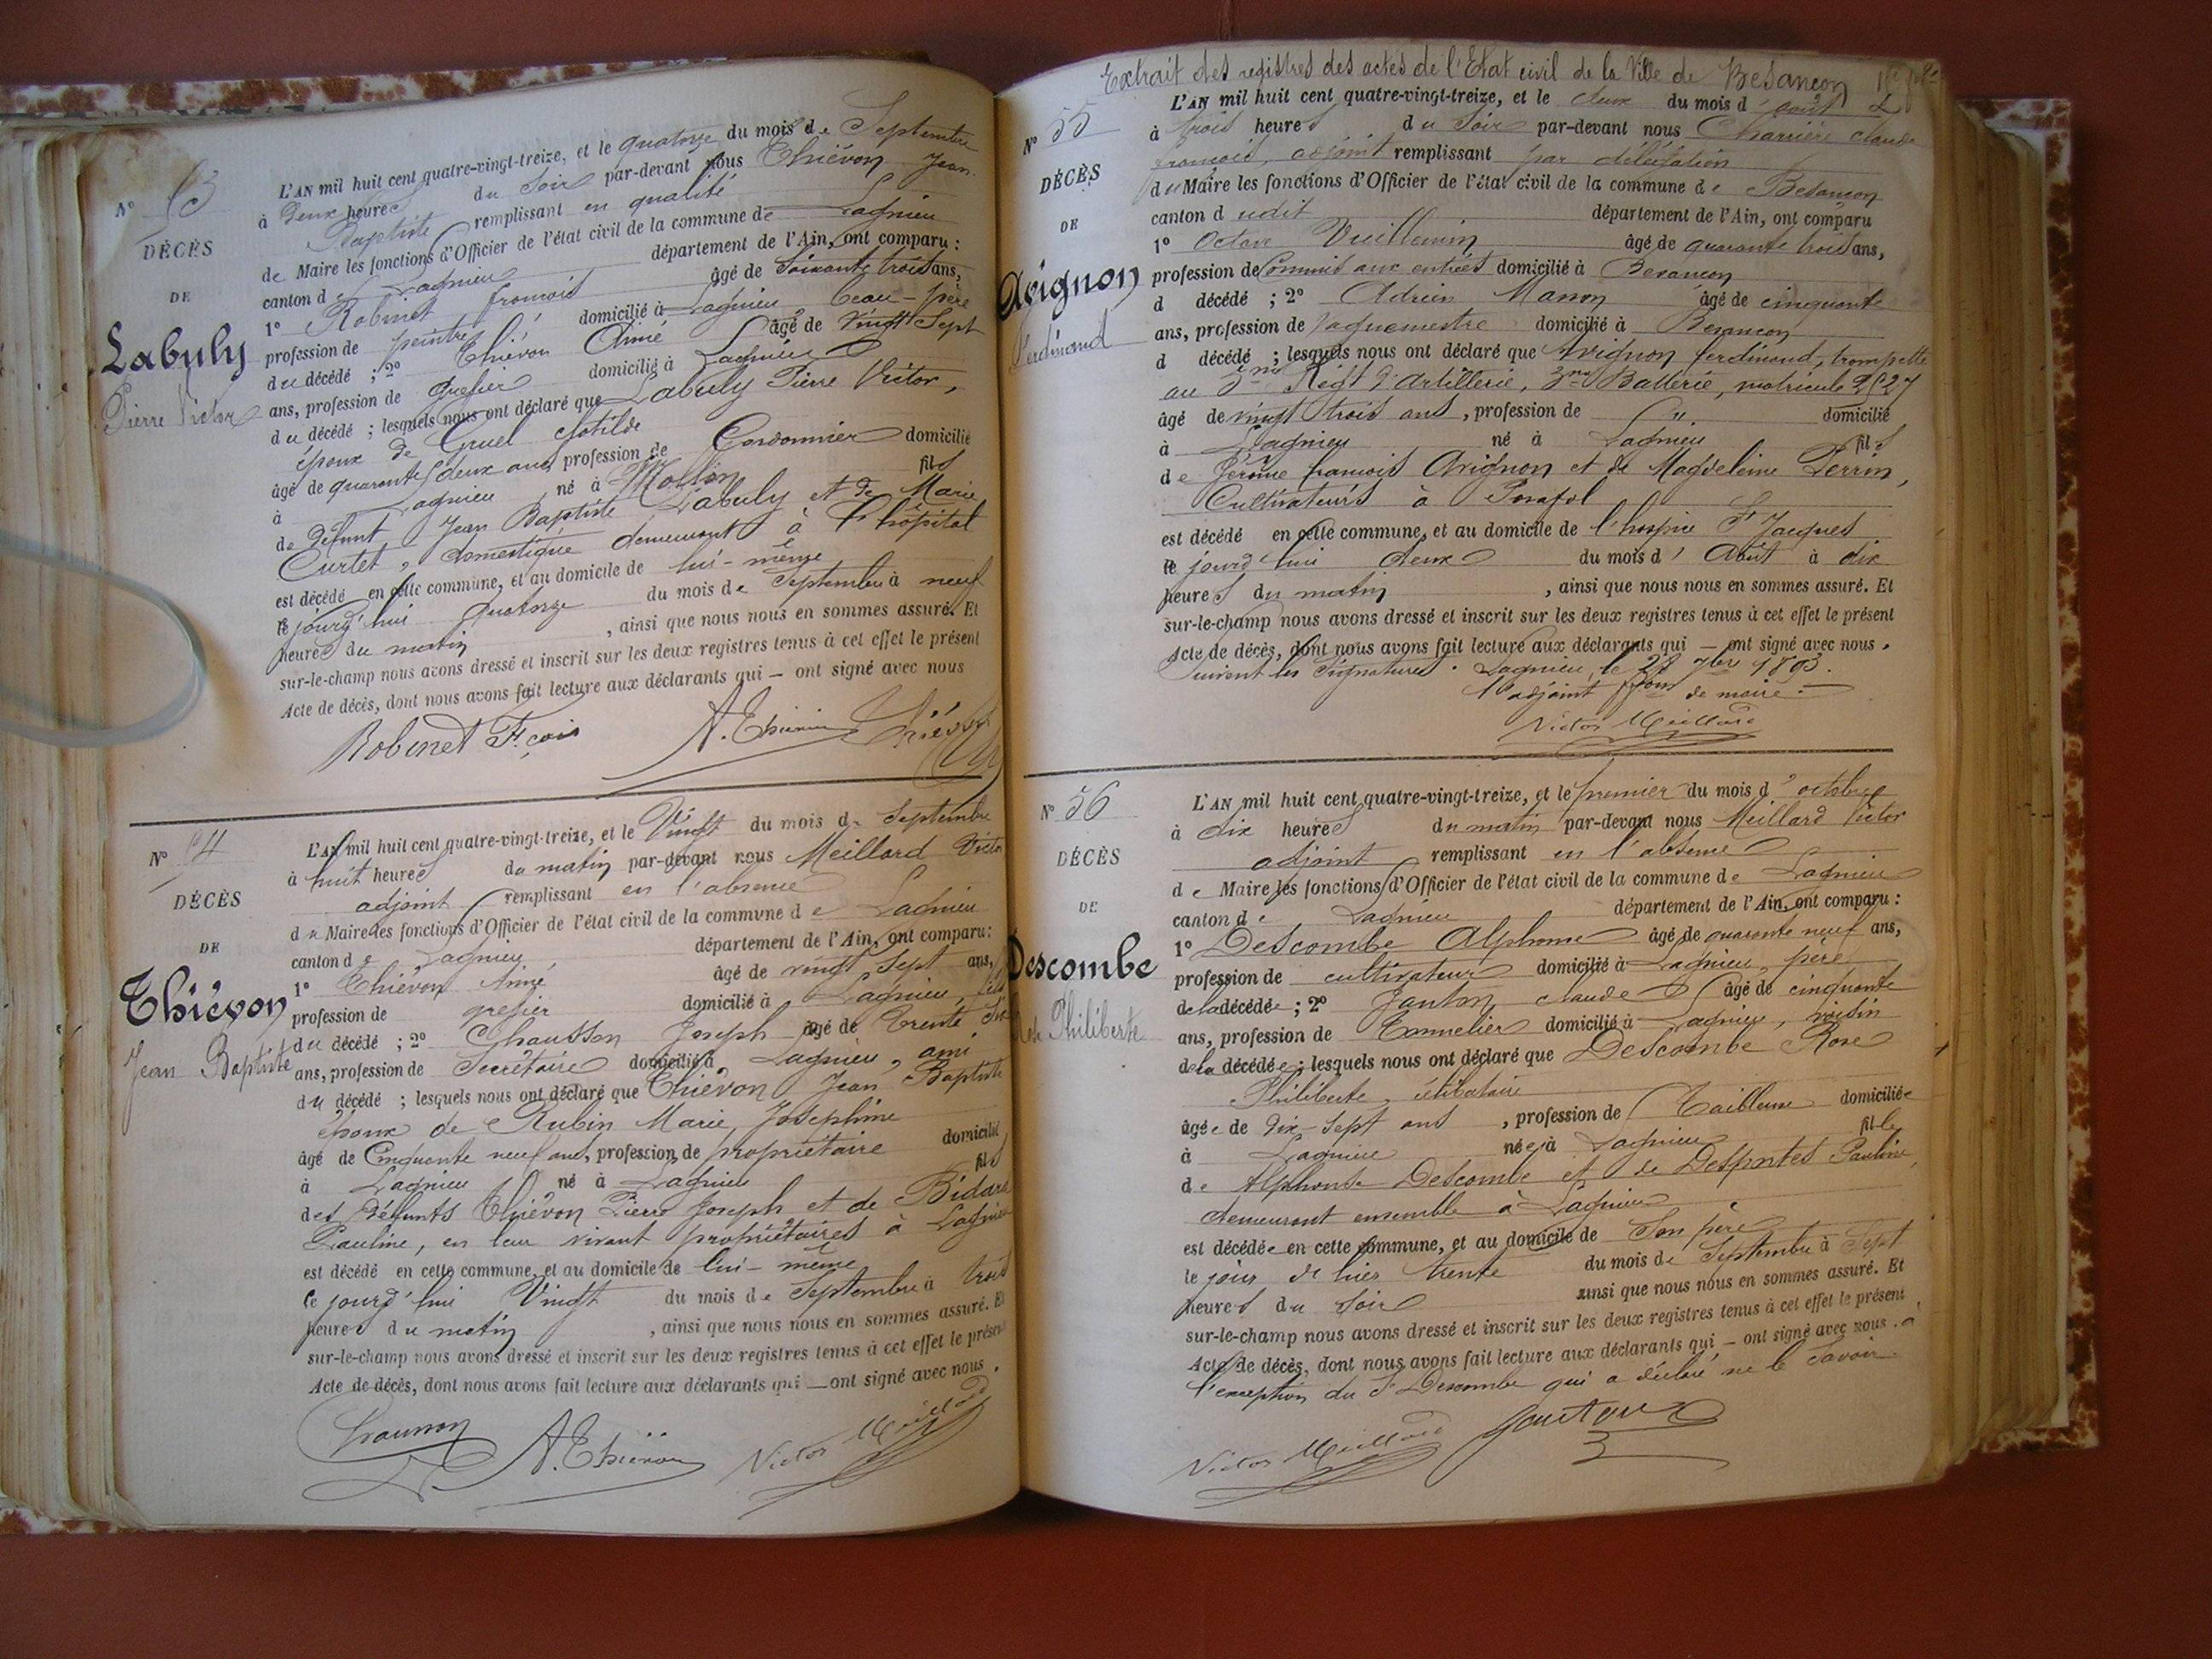 N° 53
DÉCÈS
DE
Labuly
Pierre Victor
L'AN mil huit cent quatre-vingt-treize, et le quatorze du mois de Septembre
à deux heures du soir par-devant nous Thiévon Jean
Baptiste remplissant en qualité
de Maire les fonctions d'Officier de l'état civil de la commune de Lagnieu
canton de Lagnieu département de l'Ain, ont comparu :
1° Robinet françois âgé de soixante trois ans,
profession de peintre domicilié à Lagnieu beau-père
du décédé ; 2° Thiévon Aimé âgé de vingt sept
ans, profession de grefier domicilié à Lagnieu
du décédé ; lesquels nous ont déclaré que Labuly Pierre Victor,
époux de Gruel Clotilde
âgé de quarante deux ans, profession de Cordonnier domicilié
à Lagnieu, né à Mollon fils
de défunt Jean Baptiste Labuly et de Marie
Curtet, domestique demeurant à l'hôpital
est décédé en cette commune, et au domicile de lui-même
le jourd'hui quatorze du mois de Septembre à neuf
heures du matin, ainsi que nous nous en sommes assuré. Et
sur-le-champ nous avons dressé et inscrit sur les deux registres tenus à cet effet le présent
Acte de décès, dont nous avons fait lecture aux déclarants qui — ont signé avec nous
Robinet F.çois A. Thiévon Thiévon
N° 54
DÉCÈS
DE
Thiévon
Jean Baptiste
L'AN mil huit cent quatre-vingt-treize, et le Vingt du mois de Septembre
à huit heures du matin par-devant nous Meillard Victor
adjoint remplissant en l'absence
du Maire les fonctions d'Officier de l'état civil de la commune de Lagnieu
canton de Lagnieu, département de l'Ain, ont comparu :
1° Thiévon Aimé âgé de vingt sept ans,
profession de grefier domicilié à Lagnieu, fils
du décédé ; 2° Chausson Joseph âgé de trente six
ans, profession de Secrétaire domicilié à Lagnieu, ami
du décédé ; lesquels nous ont déclaré que Thiévon Jean Baptiste
époux de Rubin Marie Joséphine
âgé de Cinquante neuf ans, profession de propriétaire domicilié
à Lagnieu né à Lagnieu fils
des défunts Thiévon Pierre Joseph et de Bidard
Pauline, en leur vivant propriétaires à Lagnieu
est décédé en cette commune, et au domicile de lui-même
le jourd'hui Vingt du mois de Septembre à trois
heures du matin, ainsi que nous nous en sommes assuré. Et
sur-le-champ nous avons dressé et inscrit sur les deux registres tenus à cet effet le présent
Acte de décès, dont nous avons fait lecture aux déclarants qui — ont signé avec nous.
Chausson A. Thiévon Victor Meillard
Extrait des registres des actes de l'Etat civil de la Ville de Besançon
N° 55
DÉCÈS
DE
Avignon
Ferdinand
L'AN mil huit cent quatre-vingt-treize, et le deux du mois d'août
à trois heures du soir par-devant nous Charrière claude
françois, adjoint remplissant par délégation
du Maire les fonctions d'Officier de l'état civil de la commune de Besançon
canton dudit département de l'Ain, ont comparu
1° Octave Vuillemin âgé de quarante trois ans,
profession de Commis aux entrées domicilié à Besançon
d décédé ; 2° Adrien Manon âgé de cinquante
ans, profession de Vaguemestre domicilié à Besançon
d décédé ; lesquels nous ont déclaré que Avignon ferdinand, trompette
au 5me Régt d'Artillerie, 3me Batterie, matricule 2527
âgé de vingt trois ans, profession de " domicilié
à Lagnieu né à Lagnieu fils
de Jérôme françois Avignon et de Magdeleine Perrin,
Cultivateurs à Posafol
est décédé en cette commune, et au domicile de l'hospice St Jacques
le jourd'hui deux du mois d'Août à dix
heures du matin, ainsi que nous nous en sommes assuré. Et
sur-le-champ nous avons dressé et inscrit sur les deux registres tenus à cet effet le présent
Acte de décès, dont nous avons fait lecture aux déclarants qui — ont signé avec nous.
Suivent les signatures. Lagnieu, le 27 7bre 1893.
l'adjoint ffons de maire
Victor Meillard
N° 56
DÉCÈS
DE
Descombe
Rose Philiberte
L'AN mil huit cent quatre-vingt-treize, et le premier du mois d'octobre
à dix heures du matin par-devant nous Meillard Victor
adjoint remplissant en l'absence
de Maire les fonctions d'Officier de l'état civil de la commune de Lagnieu
canton de Lagnieu département de l'Ain, ont comparu :
1° Descombe Alphonse âgé de quarante neuf ans,
profession de cultivateur domicilié à Lagnieu, père
de la décédée ; 2° Janton claude âgé de cinquante
ans, profession de Tonnelier domicilié à Lagnieu, voisin
de la décédée ; lesquels nous ont déclaré que Descombe Rose
Philiberte, célibataire
âgée de dix-sept ans, profession de Tailleuse domiciliée
à Lagnieu née à Lagnieu fille
de Alphonse Descombe et de Desportes Pauline,
demeurant ensemble à Lagnieu
est décédée en cette commune, et au domicile de Son père
le jour de hier trente du mois de Septembre à Sept
heures du soir ainsi que nous nous en sommes assuré. Et
sur-le-champ nous avons dressé et inscrit sur les deux registres tenus à cet effet le présent
Acte de décès, dont nous avons fait lecture aux déclarants qui — ont signé avec nous. à
l'exception du Sr Descombe qui a déclaré ne le savoir.
Victor Meillard Janton